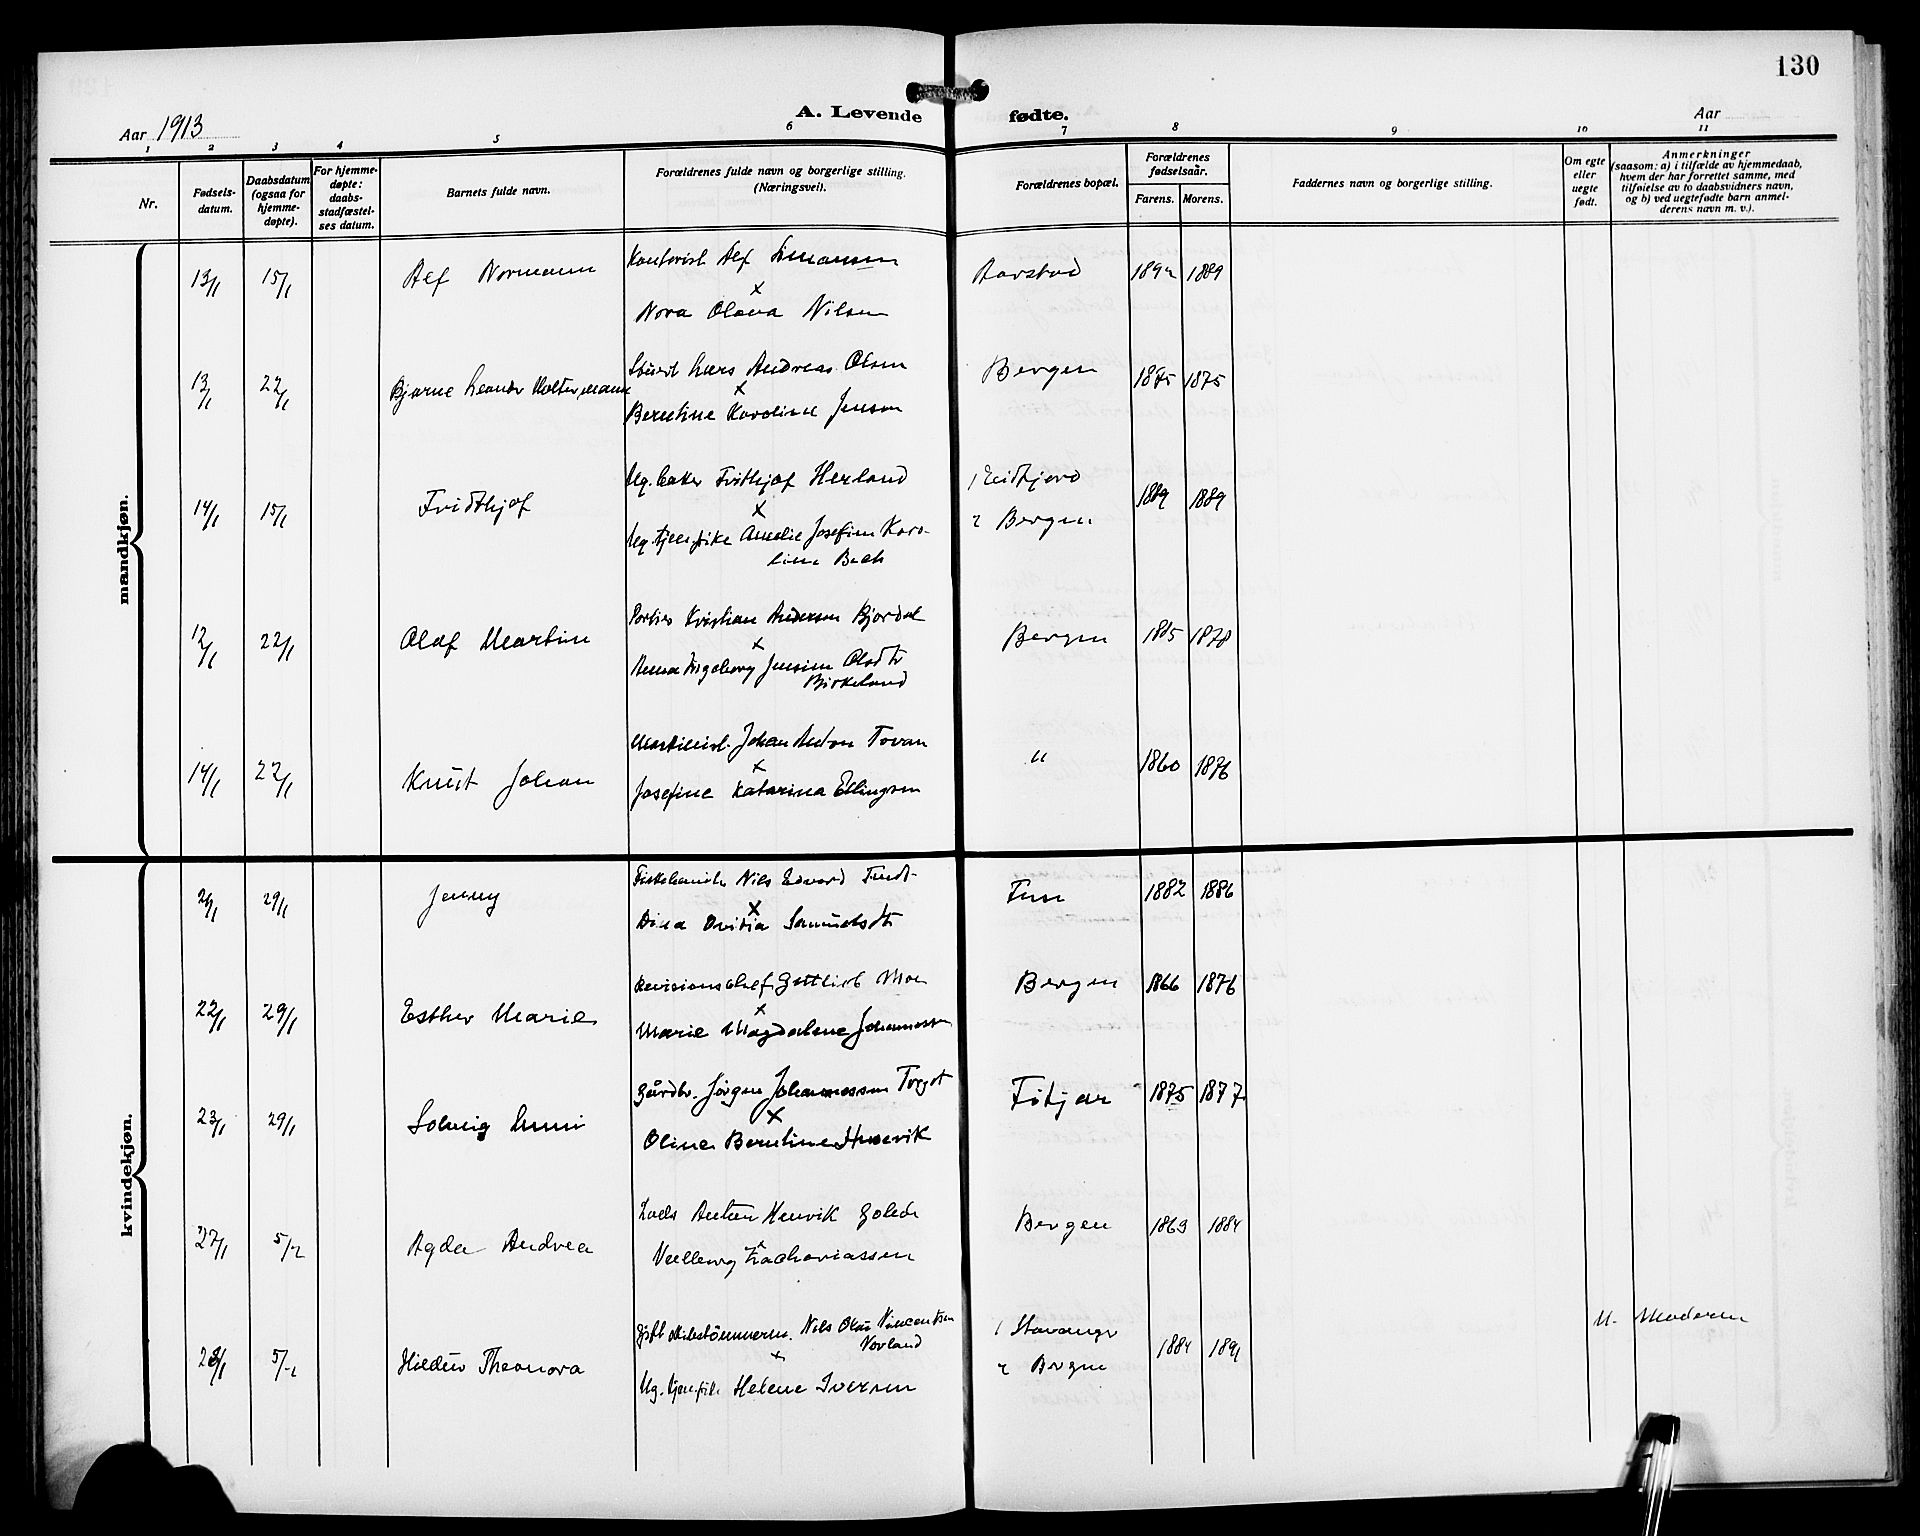 130
Aar 1913 A. Levende fødte. Aar
1 2 3 4 5 6 7 8 9 10 11
Nr.
Fødsels-
datum.
Daabsdatum
(ogsaa for
hjemme-
døpte).
For hjemme-
døpte:
daabs-
stadfæstel-
ses datum.
Barnets fulde navn.
Forældrenes fulde navn og borgerlige stilling.
(Næringsvei).
Forældrenes bopæl.
Forældrenes
fødselsaar.
Farens. Morens.
Faddernes navn og borgerlige stilling.
Om egte
eller
uegte
født.
Anmerkninger
(saasom: a) i tilfælde av hjemmedaab,
hvem der har forrettet samme, med
tilføielse av to daabsvidners navn,
og b) ved uegtefødte barn anmel-
derens navn m. v.).
mandkjøn.
13/1 15/1 Alf Normann Kontorist Alf Simonsen Aarstad 1892 1889
x
Nora Olava Nilsen
13/1 22/1 Bjarne Leander Lars Andreas Olsen Bergen 1875 1875
x
Berntine Karoline Jensen
14/1 15/1 Fridthjof Ug. Fridthjof Herland 1 Eidfjord 1889 1889
x 2 Bergen
Ug. tjen.pike Amelie Josefine Karo-
line Bech
12/1 22/1 Olaf Martin Portier Kristian Andersen Bjordal Bergen 1885 1878
x
Anna Ingeborg Jensine Olsdtr
Birkeland
14/1 22/1 Knut Johan Maskinist. Johan Anton Tovan " 1860 1876
x
Josefine Katarina Ellingsen
kvindekjøn.
29/1 Jenny Nils Edvard Fus 1882 1886
x
Dina Ovidia Samuelsdtr
22/1 29/1 Esther Marie Revisionschef Gottlieb Moe Bergen 1866 1876
x
Marie Magdalene Johannessen
23/1 29/1 Solveig Gårdbr. Jørgen Johannessen Fitjar 1875 1877
x
Oline Berntine
27/1 5/2 Agda Andrea Lods Anton Henrik Bergen 1869 1884
x
Zachariassen
28/1 5/2 Hildur Theonora Nils Olai Vincentsen 1 Stavanger 1884 1891 U. Moderen
Norland
x 2 Bergen
Ug. tjen.pike Helene Iversen